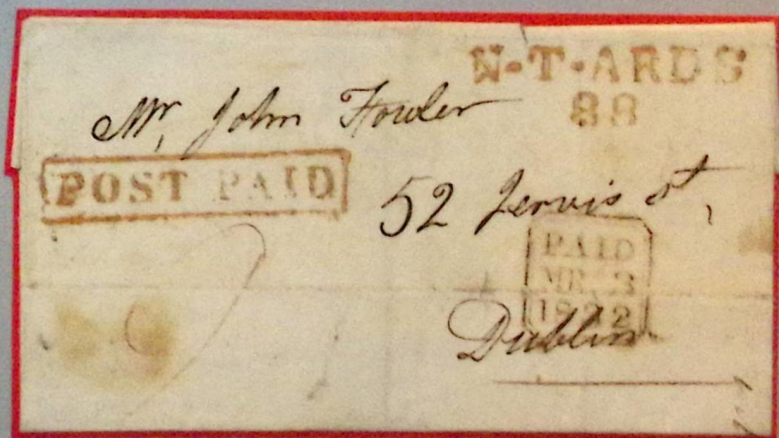 N-T-ARDS
88
Mr, John Fowler
POST PAID
52 Jervis st,
PAID
MR 3
1822
Dublin